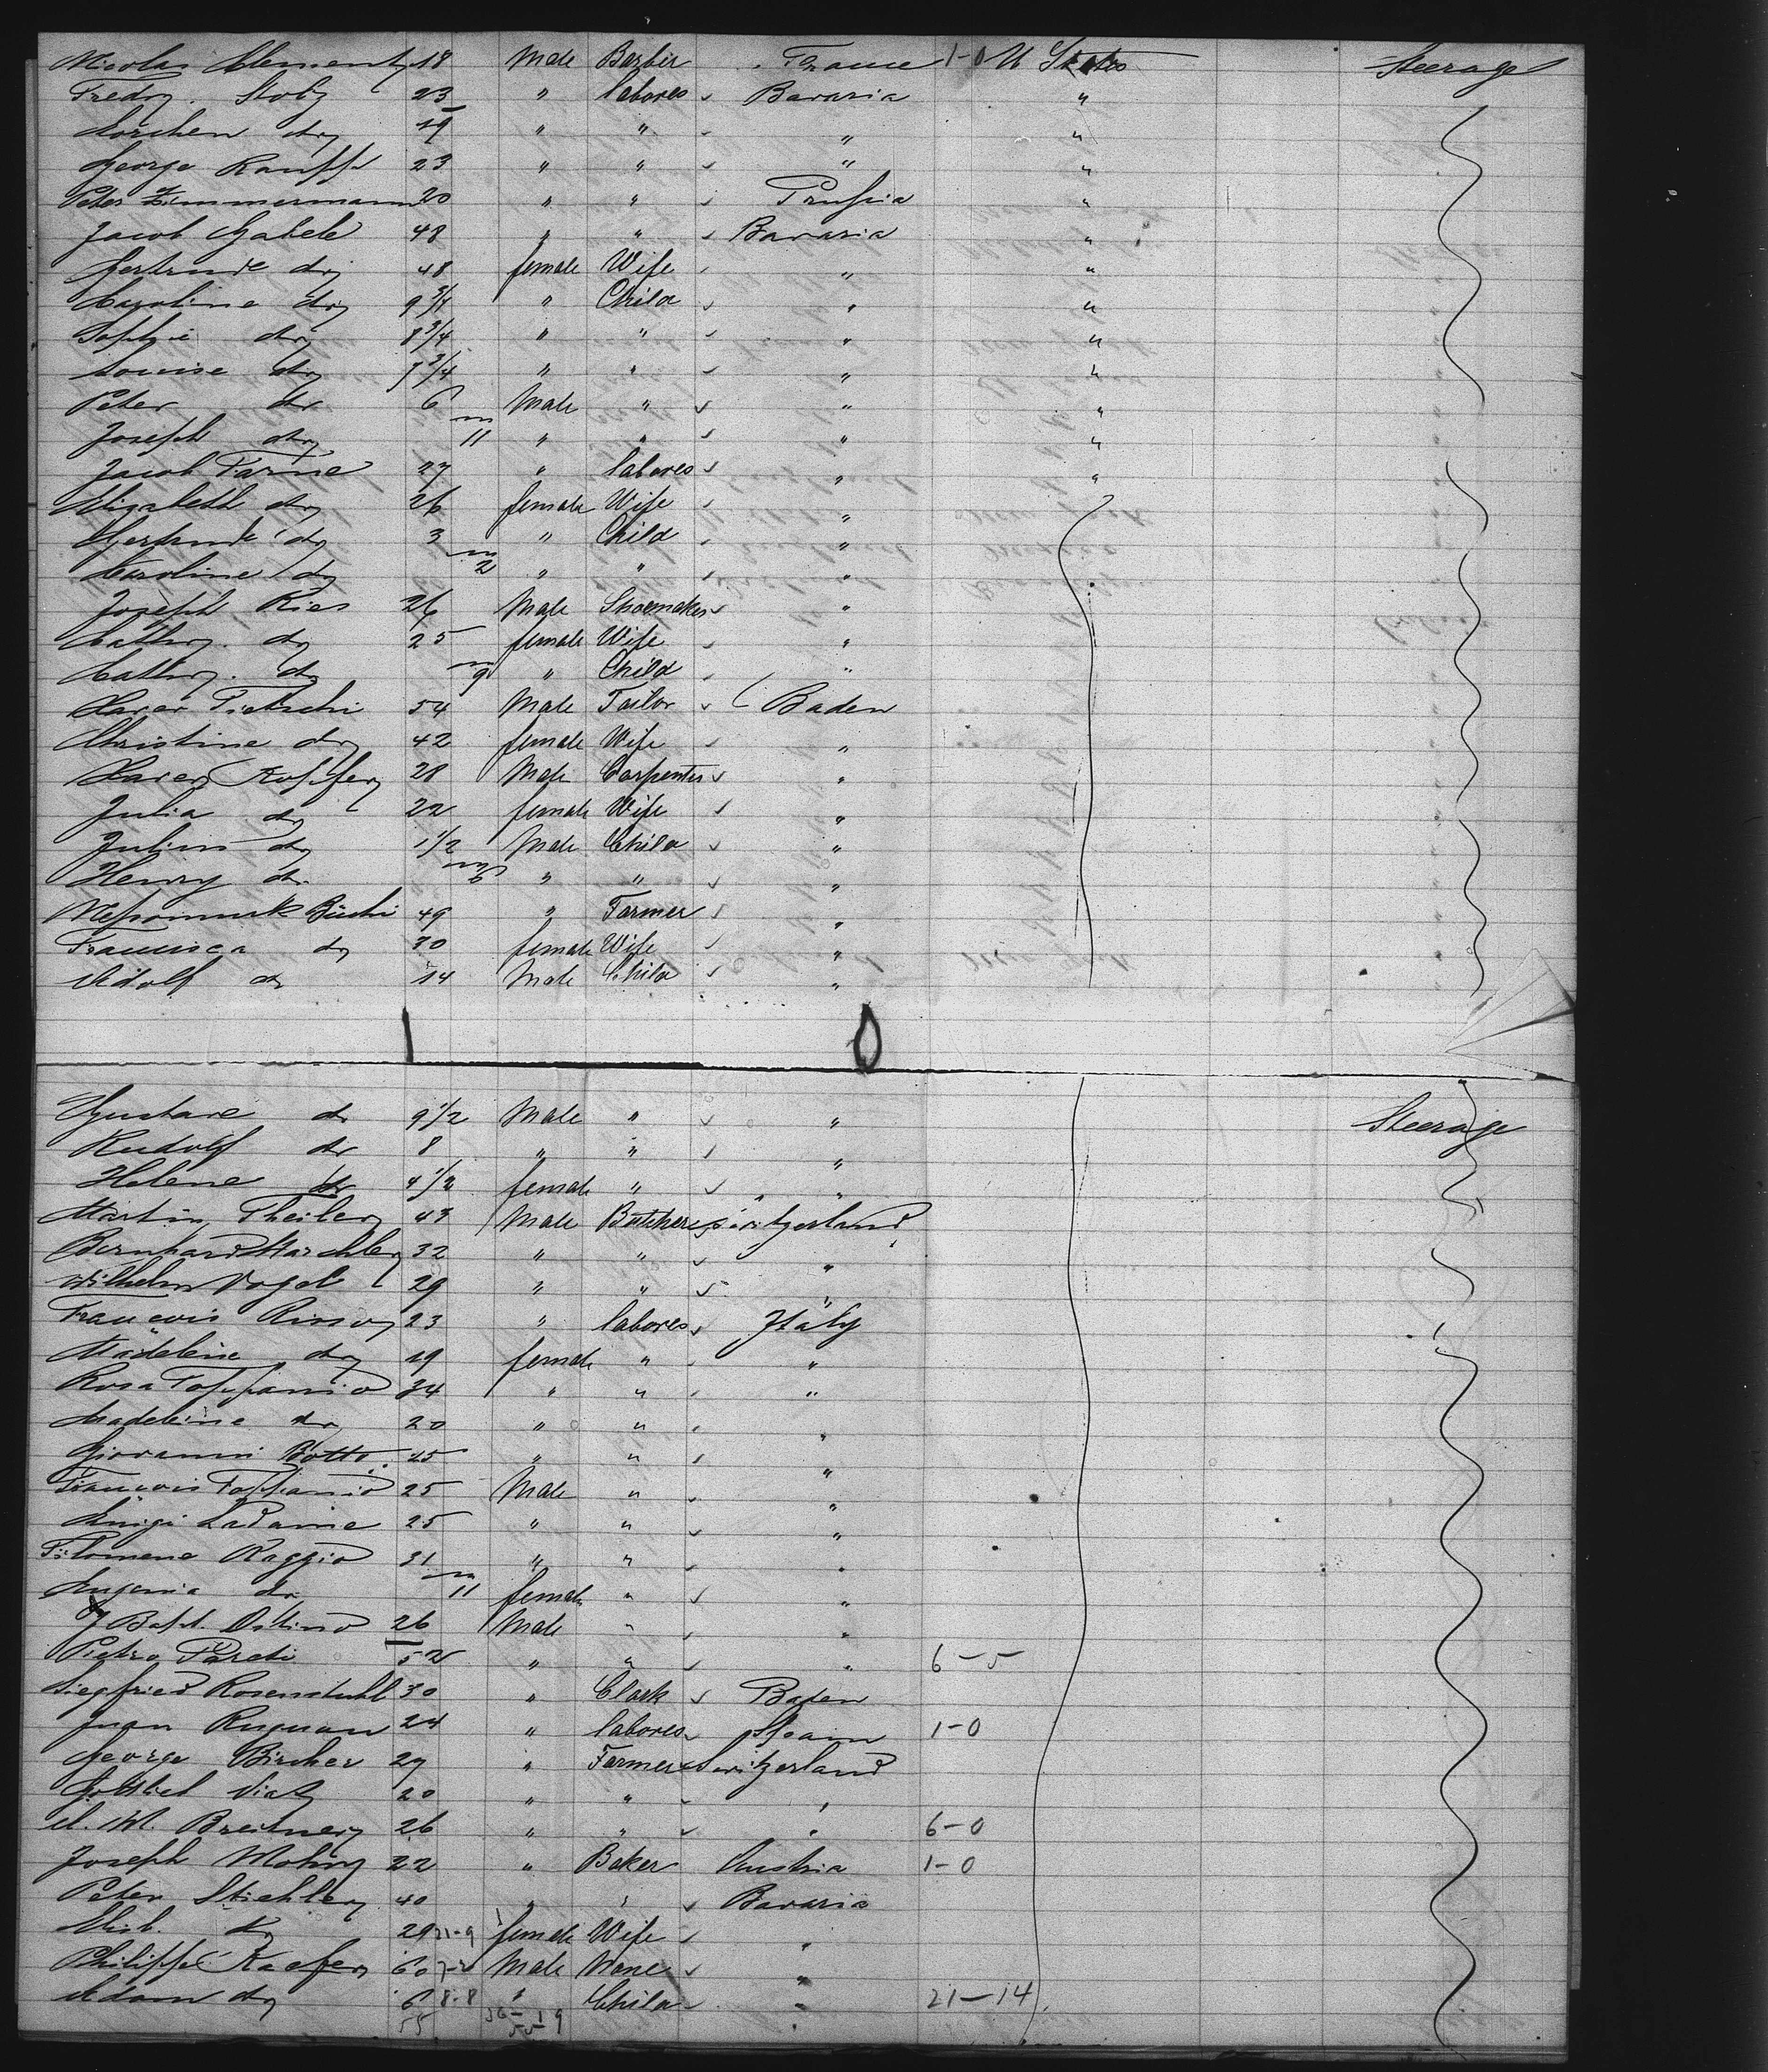 Nicolas Clementz 18 Male Barbier France 1-0 U States Steerage
Fredr. Stolz 23 " labores Bavaria "
Lorchen do 19 " " " "
George Kauff 23 " " " "
Peter Zimmermann 20 " " Prussia "
Jacob Gabele 48 " " Bavaria "
Gertrude do 48 female Wife " "
Caroline do 9 3/4 " Child " "
Sophie do 8 3/4 " " " "
Louise do 7 3/4 " " " "
Peter do 6 Male " " "
Joseph do m 11 " " " "
Jacob Farne 27 " labores " "
Elizabeth do 26 female Wife "
Gertrude do 3 " Child "
Caroline do m 2 " " "
Joseph Ries 26 Male Shoemaker "
Cathr. do 25 female Wife "
Cathr. do m 9 " Child "
Xaver Pietschi 54 Male Tailor Baden
Christine do 42 female Wife "
Xaver 28 Male Carpenter "
Julia do 22 female Wife "
Julius do 1 1/2 Male Child "
Henry do m 6 " " "
Nepomuk Büchi 49 " Farmer "
Francisca do 30 female Wife "
Adolf do 14 Male Child "
Gustave do 9 1/2 Male " " Steerage
Rudolf do 8 " " "
Helene do 4 1/2 female " "
Martin Theiler 43 Male Butcher Switzerland
Bernhard Marchler 32 " " "
Wilhelm Vogel 29 " " "
Francois Risso 23 " labores Italy
Madeleine do 19 female " "
Rosa Toppanio 34 " " "
Madeleine do 20 " " "
Giovanni Botto 25 " " "
Francois Toppanio 25 Male " "
Luigi Ladaine 25 " " "
Filomene Raggio 31 " " "
Eugenia do m 11 female " "
J Bapt. Ostino 26 Male " "
Pietro Pareti 52 " " " 6-5
Siegfried Rosenstuhl 30 " Clark Baden
Juan 24 " labores Spain 1-0
George Bircher 27 " Farmer Switzerland
Gottlieb Viatz 20 " " "
A. M. Breitner 26 " " " 6-0
Joseph Mohr 22 " Baker Austria 1-0
Peter Stichler 40 " " Bavaria
Elis. do 29 21-9 female Wife "
Philippe Kaefer 60 7-2 Male None "
Adam do 6 8-8 " Child " 21-14
55 36-19